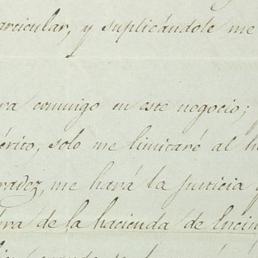 arcicular, y suplicándole me
ra conmigo en este negocio;
érito, solo me limitaré al h
radez, me hará la justicia
ra de la hacienda de Encin